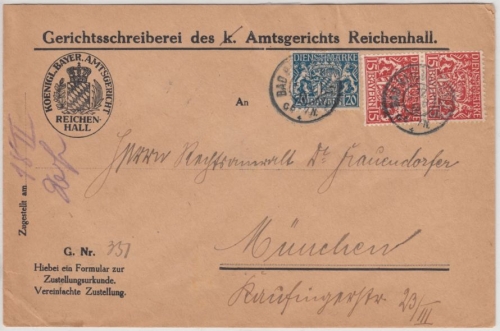 Gerichtsschreiberei des k. Amtsgerichts Reichenhall.
KOENIGL. BAYER. AMTSGERICHT
REICHEN-
HALL
An
DIENSTMARKE
20 BAYERN 20
DIENSTMARKE
15 BAYERN 15
DIENSTMARKE
15 15
BAD
Herrn Rechtsanwalt Dr Frauendorfer
München
Kaufingerstr. 23/III
Zugestellt am
18/II
G. Nr. 351
Hiebei ein Formular zur
Zustellungsurkunde.
Vereinfachte Zustellung.